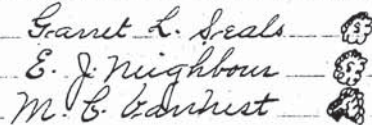 Garret L. Seals
E. J. Neighbour
M. C. Vanhest